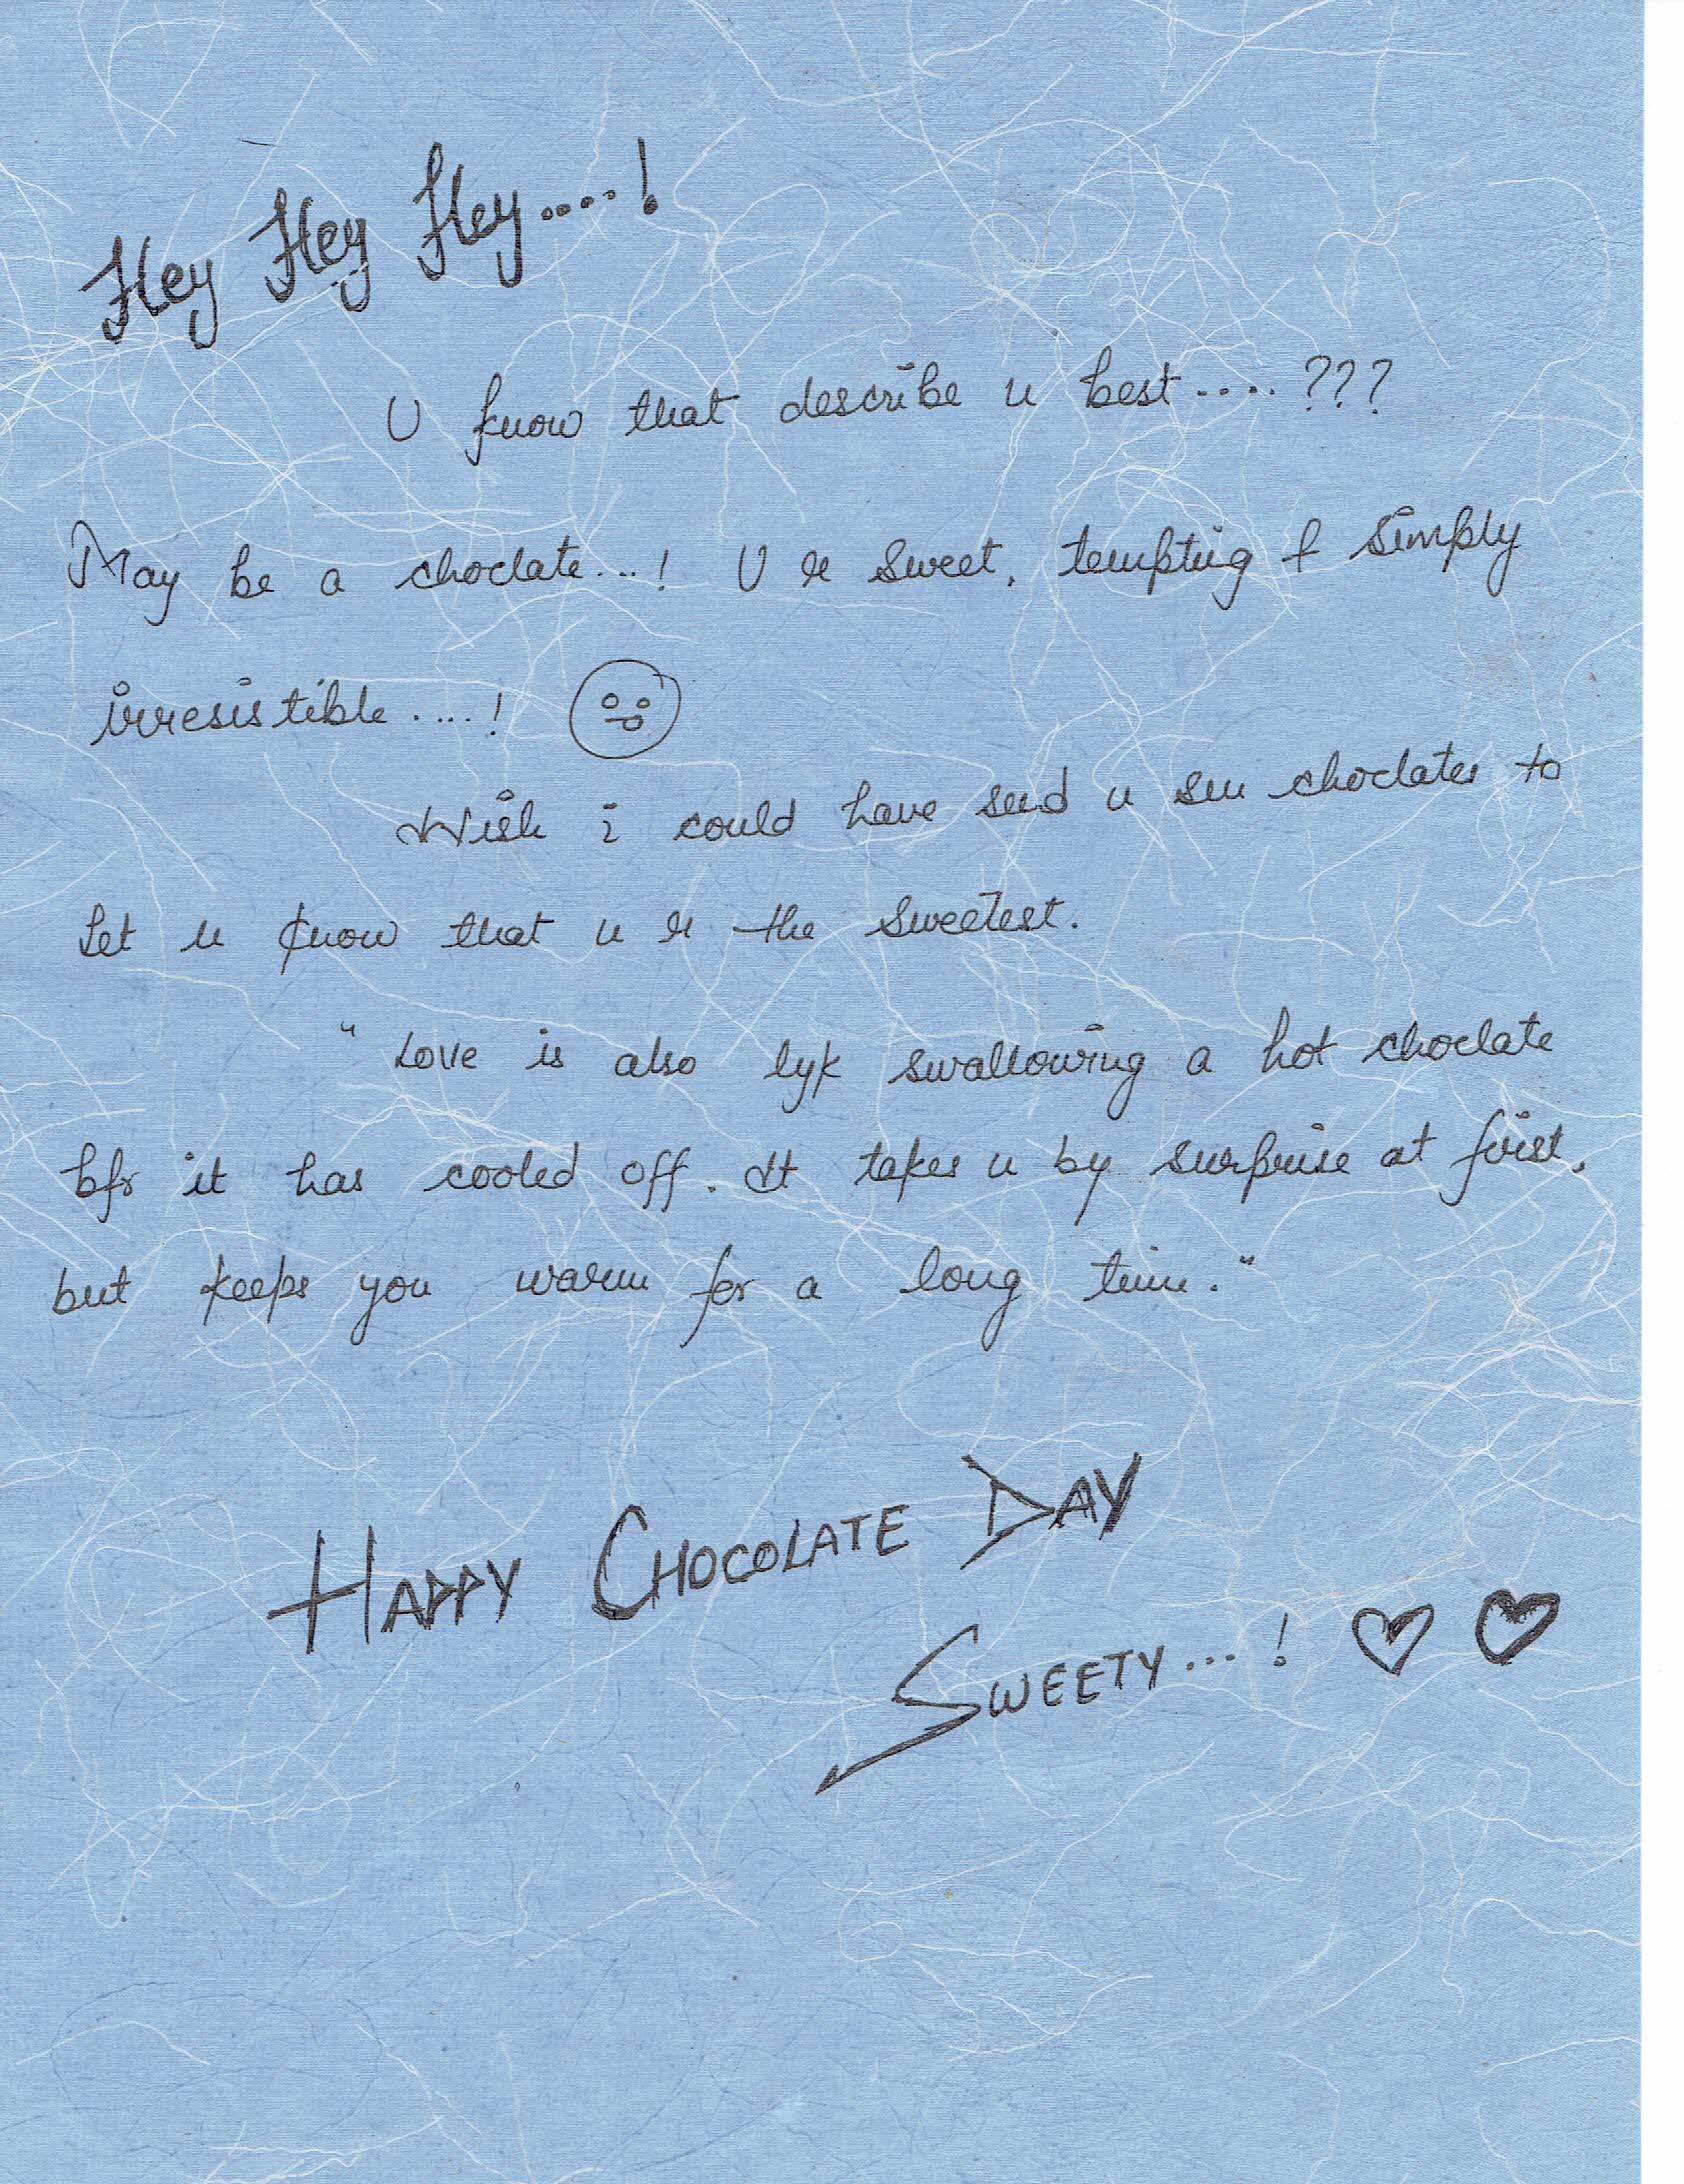 Hey Hey Hey....!
U know that describe u best....???
May be a choclate...! U r sweet, tempting & simply
irresistible....!
Wish i could have send u sm choclates to
let u know that u r the sweetest.
"Love is also lyk swallowing a hot choclate
bfr it has cooled off. It takes u by surprise at first,
but keeps you warm for a long time."
HAPPY CHOCOLATE DAY
SWEETY...!